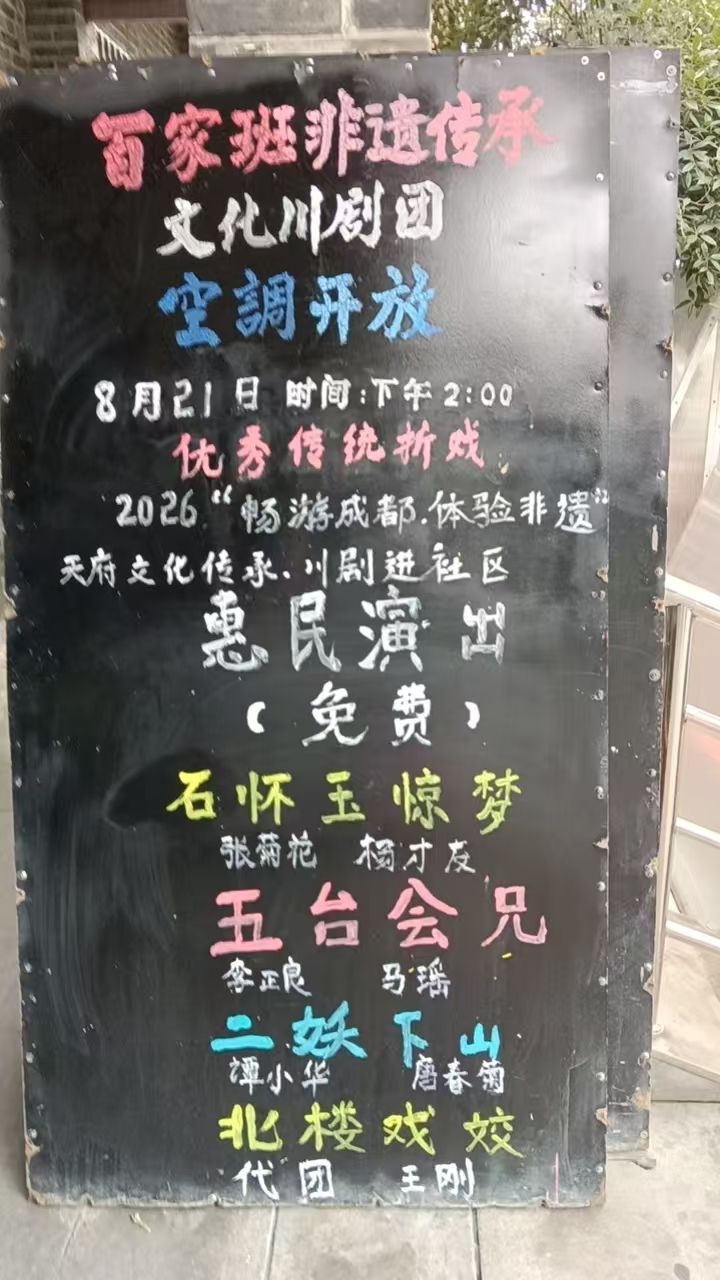 百家班非遗传承
文化川剧团
空調开放
8月21日 时间:下午2:00
优秀传统折戏
2026“畅游成都.体验非遗”
天府文化传承.川剧进社区
惠民演出
(免费)
石怀玉惊梦
张菊花 杨才友
五台会兄
李正良 马瑶
二妖下山
谭小华 唐春菊
北楼戏姣
代团 王刚